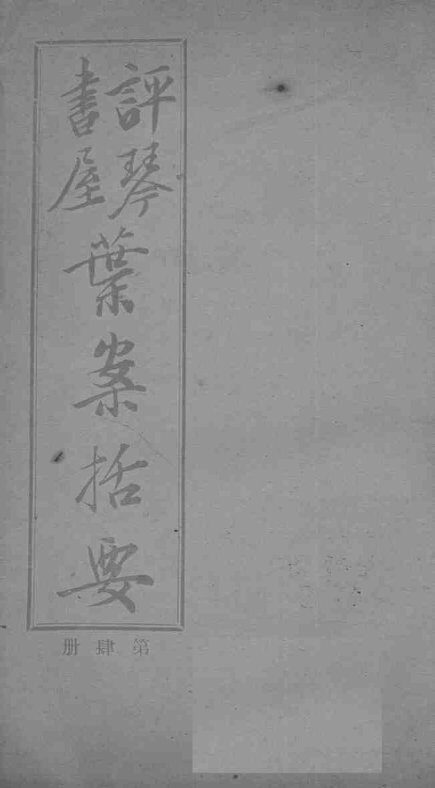 評琴書屋
葉案括要
第肆册